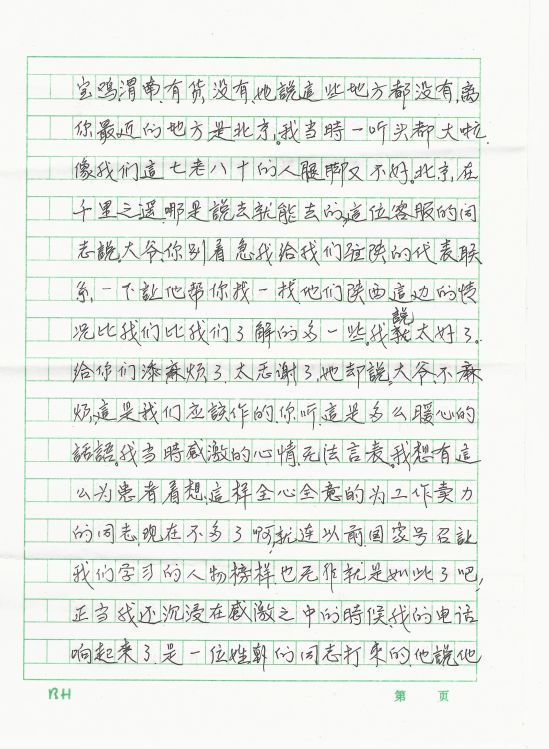 宝鸣渭南,有货没有,她說這些地方都没有,离
你最近的地方是北京。我当時一听头都大啦,
像我们這七老八十的人腿脚又不好。北京,在
千里之遥,哪是說去就能去的,這位客服的同
志說,大爷,你别着急我给我们驻陕的代表联
系,一下让他帮你找一找,他们陕西這边的情
况比我们比我们了解的多一些。我說太好了。
给你们添麻烦了,太恶谢了,她却說,大爷,不麻
烦,這是我们应該作的,你听,這是多么暖心的
話語。我当時感激的心情,无法言表。我想有這
么为患者着想,這样全心全意的为工作卖力
的同志,现在不多了啊,就连以前国家号召让
我们学习的人物榜样,也无作就是如此了吧!
正当我还沉浸在感激之中的時候,我的电话
响起来了,是一位姓郭的同志打来的,他說他
BH
第 页